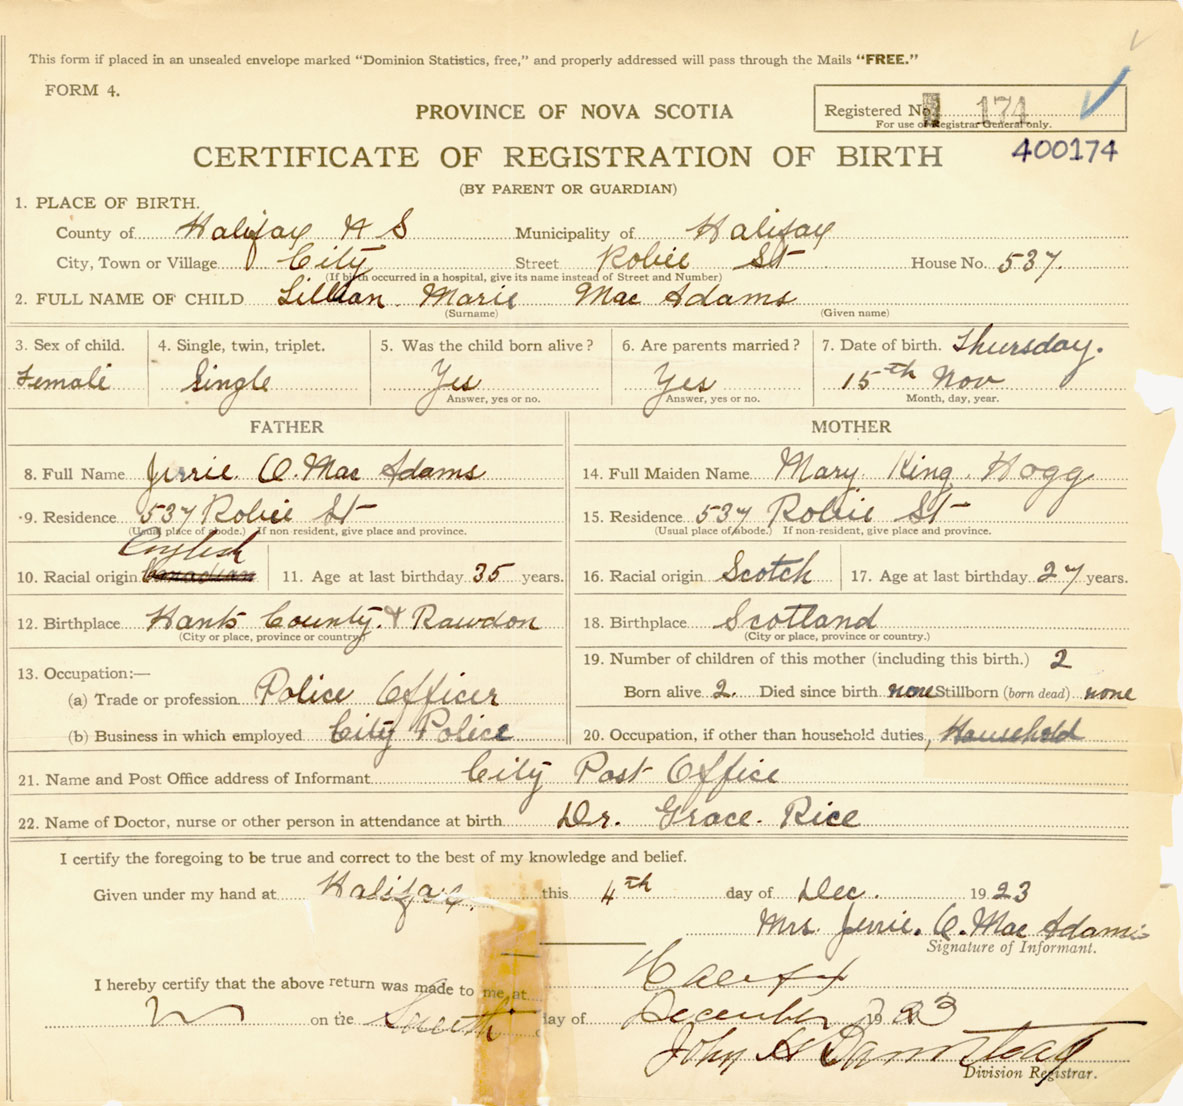 This form if placed in an unsealed envelope marked "Dominion Statistics, free," and properly addressed will pass through the Mails "FREE."
FORM 4.
PROVINCE OF NOVA SCOTIA
Registered No. 174
For use of Registrar General only.
CERTIFICATE OF REGISTRATION OF BIRTH
400174
(BY PARENT OR GUARDIAN)
1. PLACE OF BIRTH.
County of Halifax N S Municipality of Halifax
City, Town or Village City Street Robie St House No. 537.
(If birth occurred in a hospital, give its name instead of Street and Number)
2. FULL NAME OF CHILD Lillian Marie Mac Adams
(Surname) (Given name)
3. Sex of child. 4. Single, twin, triplet. 5. Was the child born alive? 6. Are parents married? 7. Date of birth. Thursday.
Female Single Yes Yes 15th Nov
Answer, yes or no. Answer, yes or no. Month, day, year.
FATHER MOTHER
8. Full Name Jerrie O. Mac Adams 14. Full Maiden Name Mary King Hogg
9. Residence 537 Robie St 15. Residence 537 Robie St
(Usual place of abode.) If non resident, give place and province. (Usual place of abode.) If non-resident, give place and province.
English
10. Racial origin Canadian 11. Age at last birthday 35 years. 16. Racial origin Scotch 17. Age at last birthday 27 years.
12. Birthplace Hants County. & Rawdon 18. Birthplace Scotland
(City or place, province or country) (City or place, province or country.)
13. Occupation:— 19. Number of children of this mother (including this birth.) 2
(a) Trade or profession Police Officer Born alive 2. Died since birth none Stillborn (born dead) none
(b) Business in which employed City Police 20. Occupation, if other than household duties, Household
21. Name and Post Office address of Informant City Post Office
22. Name of Doctor, nurse or other person in attendance at birth Dr. Grace Rice
I certify the foregoing to be true and correct to the best of my knowledge and belief.
Given under my hand at Halifax. this 4th day of Dec. 1923
Mrs. Jerrie. O. Mac Adams
Signature of Informant.
I hereby certify that the above return was made to me at Halifax
on the day of December 1923
John A
Division Registrar.